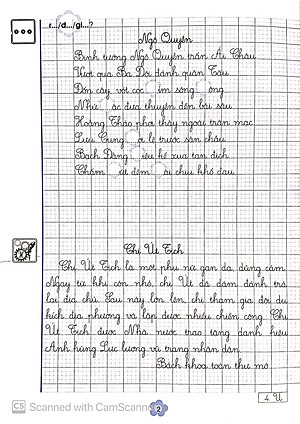 r.../d.../gi...?
Ngô Quyền
Binh tướng Ngô Quyền trấn Ái Châu
Vượt qua Ba Dội đánh quân Tàu
Đốn cây vót cọc ìm sông ông
Nhử ặc đưa thuyền đến bãi sâu
Hoằng Tháo phơi thây ngoài trận mạc
Lưu Cung ơi lệ trước sân chầu
Bạch Đằng
Chị Út Tịch
Chị Út Tịch là một phụ nữ gan dạ, dũng cảm.
Ngay từ khi còn nhỏ, chị Út đã dám đánh trả
lại địa chủ. Sau này lớn lên, chị tham gia đội du
kích địa phương và lập được nhiều chiến công. Chị
Út Tịch được Nhà nước trao tặng danh hiệu
Anh hùng Lực lượng vũ trang nhân dân.
Bách khoa toàn thư mở
4 Ư
CS Scanned with CamScanner
2